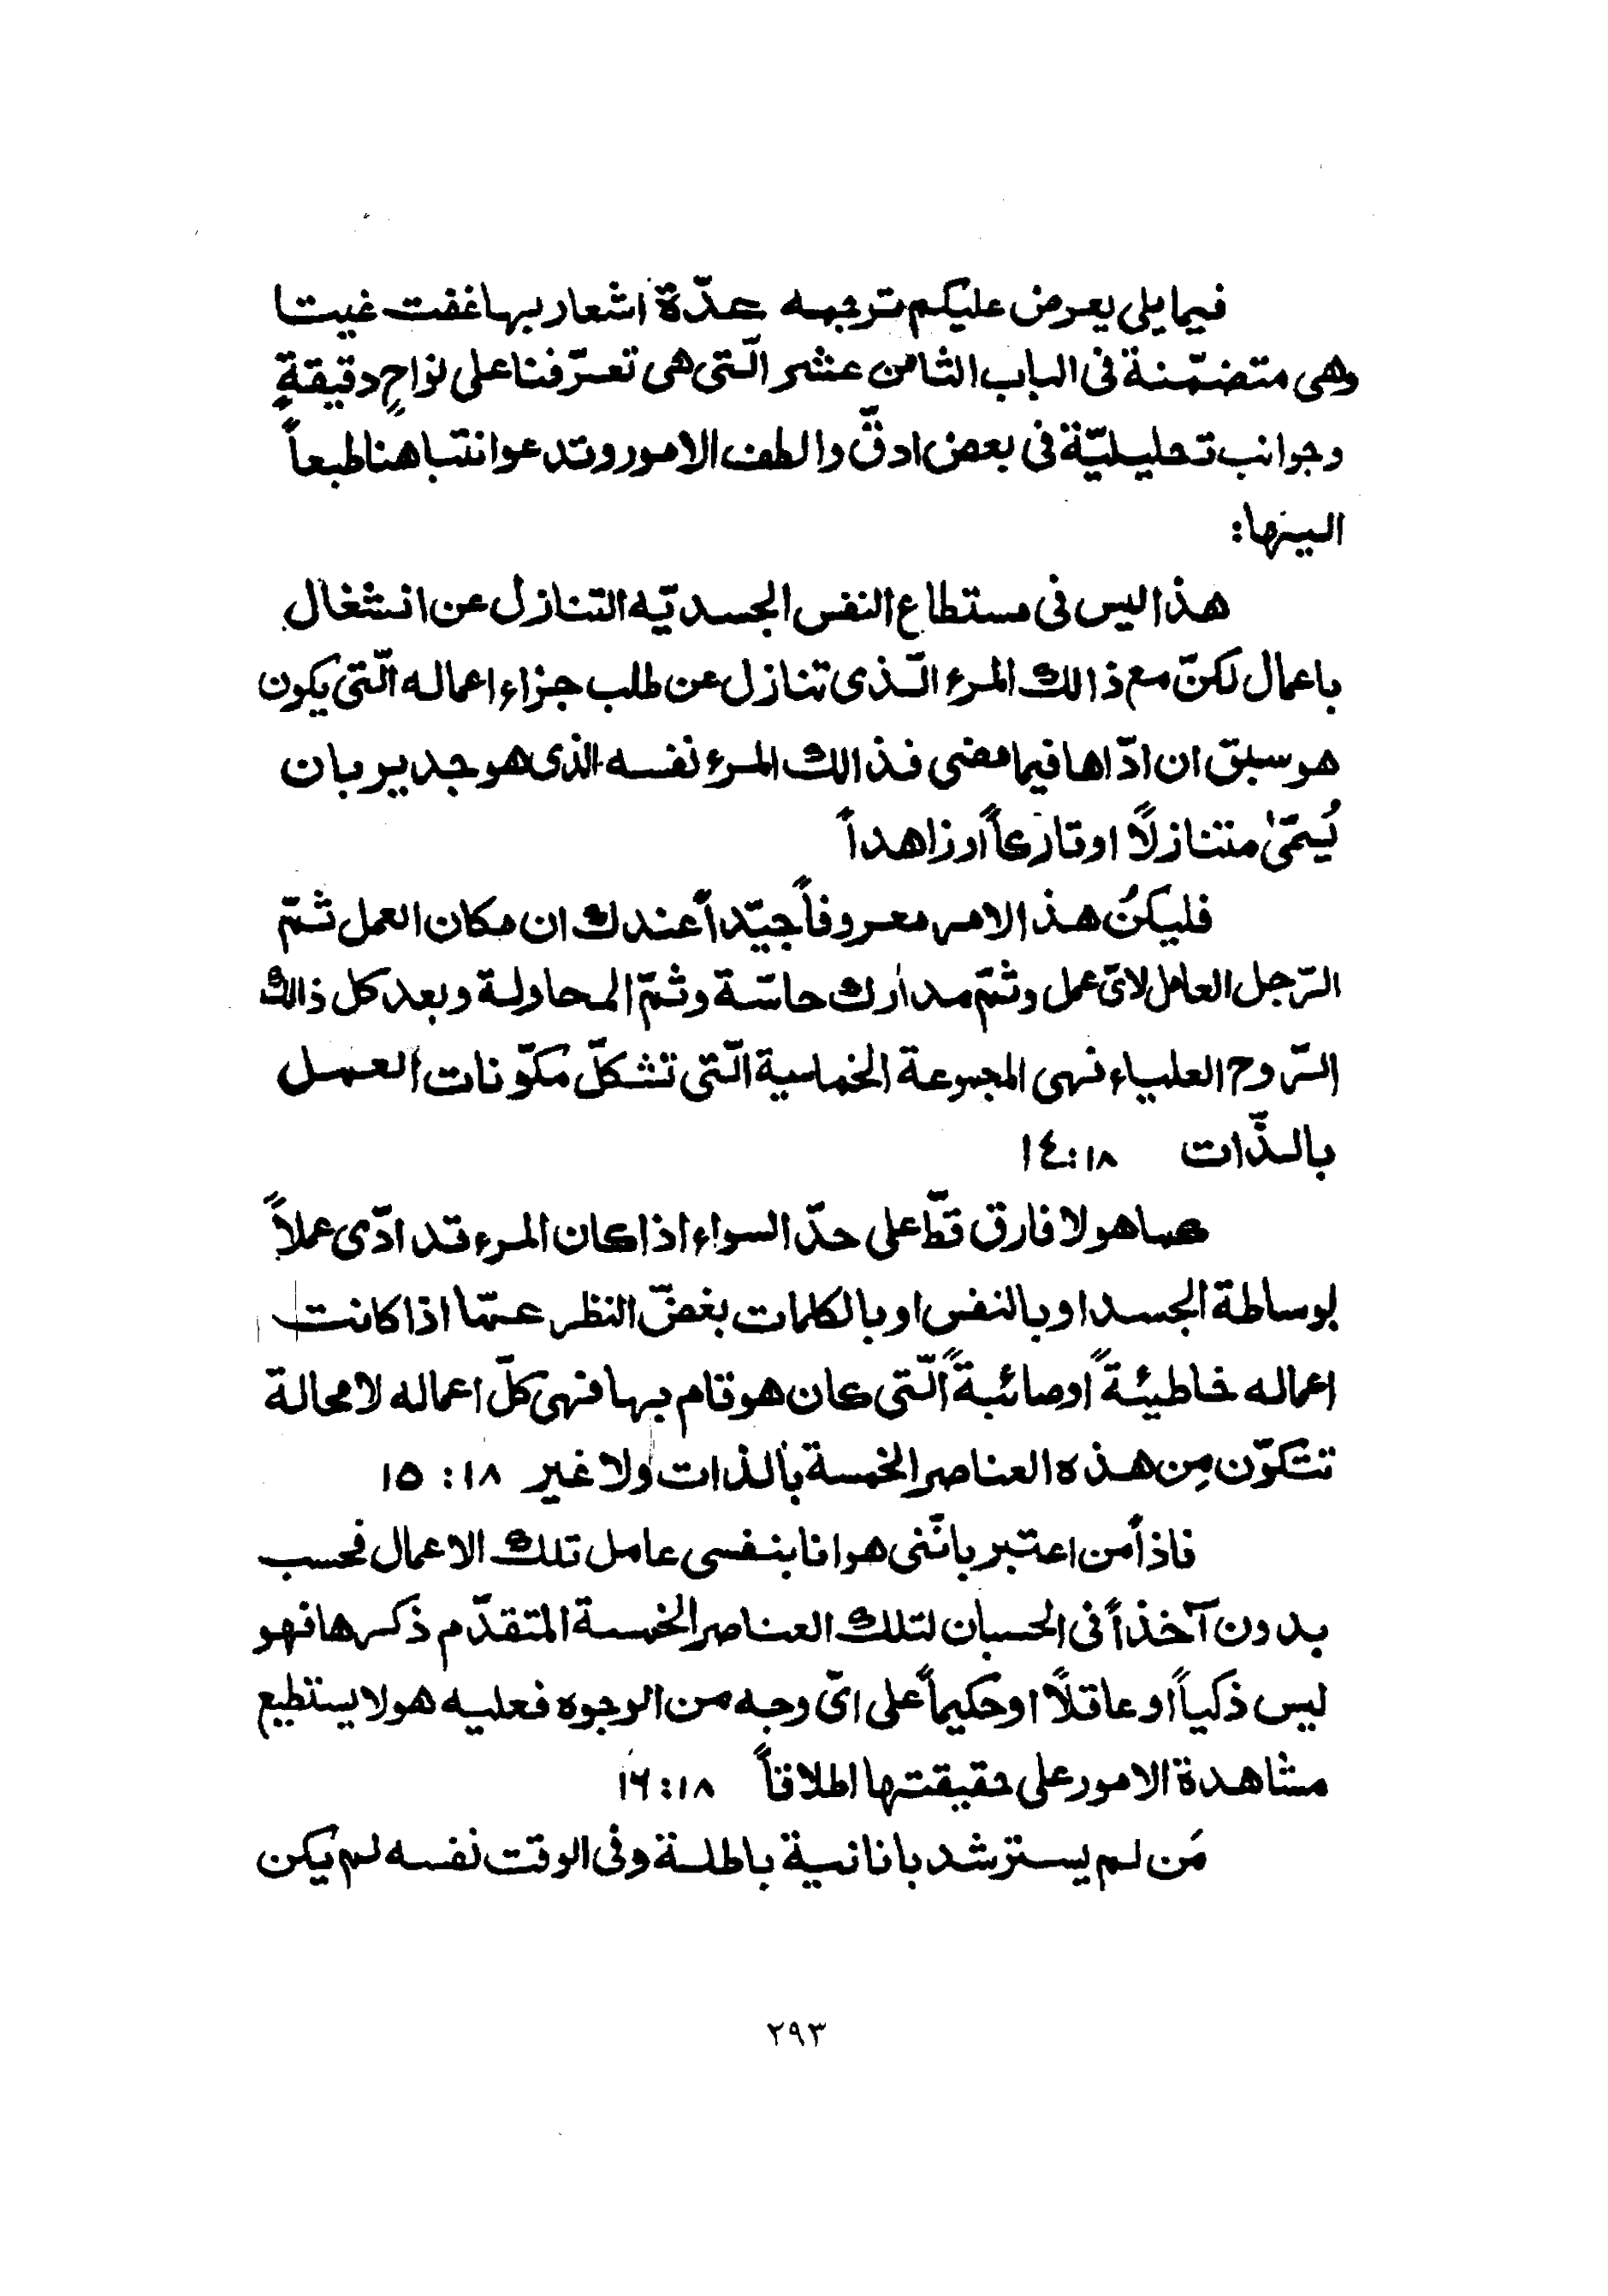 فيما يلى يعرض عليكم ترجمه عدّة اشعار بهاغفت غيتا
وهى متضمّنة فى الباب الثامن عشر الّتى هى تعرّفنا على نواحٍ دقيقةٍ
وجوانب تحليليّة فى بعض ادقّ والطف الامور وتدعو انتباهنا طبعاً
اليها:
هذا ليس فى مستطاع النفس الجسديّه التنازل عن انشغال
باعمال لكنّ مع ذالك المرء الّذى تنازل عن طلب جزاء اعماله الّتى يكون
هو سبق ان ادّاها فيما مضى فذالك المرء نفسه الذى هو جدير بان
يُسمّىٰ متنازلاً او تاركاً او زاهداً
فليكنُ هذا الامر معروفاً جيّداً عندك ان مكان العمل ثمّ
الرّجل العامل لاىّ عمل وثمّ مدارك حاسّة وثمّ المحاولة وبعد كل ذالك
الرّوح العلياء فهى المجموعة الخماسية الّتى تشكلّ مكوّنات العمل
بالذّات ١٨:١٤
هما هو لا فارق قطّ على حدّ السواء اذا كان المرء قد ادّى عملاً
بوساطة الجسد او بالنفس او بالكلمات بغضّ النظر عمّا اذا كانت
اعماله خاطيئةً او صائبةً الّتى كان هو قام بها فهى كلّ اعماله لا محالة
تتكوّن مِن هذه العناصر الخمسة بالذات ولا غير ١٨:١٥
فاذاً من اعتبر بانّنى هو انا بنفسى عامل تلك الاعمال فحسب
بدون آخذاً فى الحسبان لتلك العناصر الخمسة المتقدّم ذكرها فهو
ليس ذكياً او عاقلاً او حكيماً على اىّ وجه من الوجوه فعليه هو لا يستطيع
مشاهدة الامور على حقيقتها اطلاقاً ١٨:١٦
مَن لم يسترشد بانانية باطلة وفى الوقت نفسه لم يكن
٢٩٣